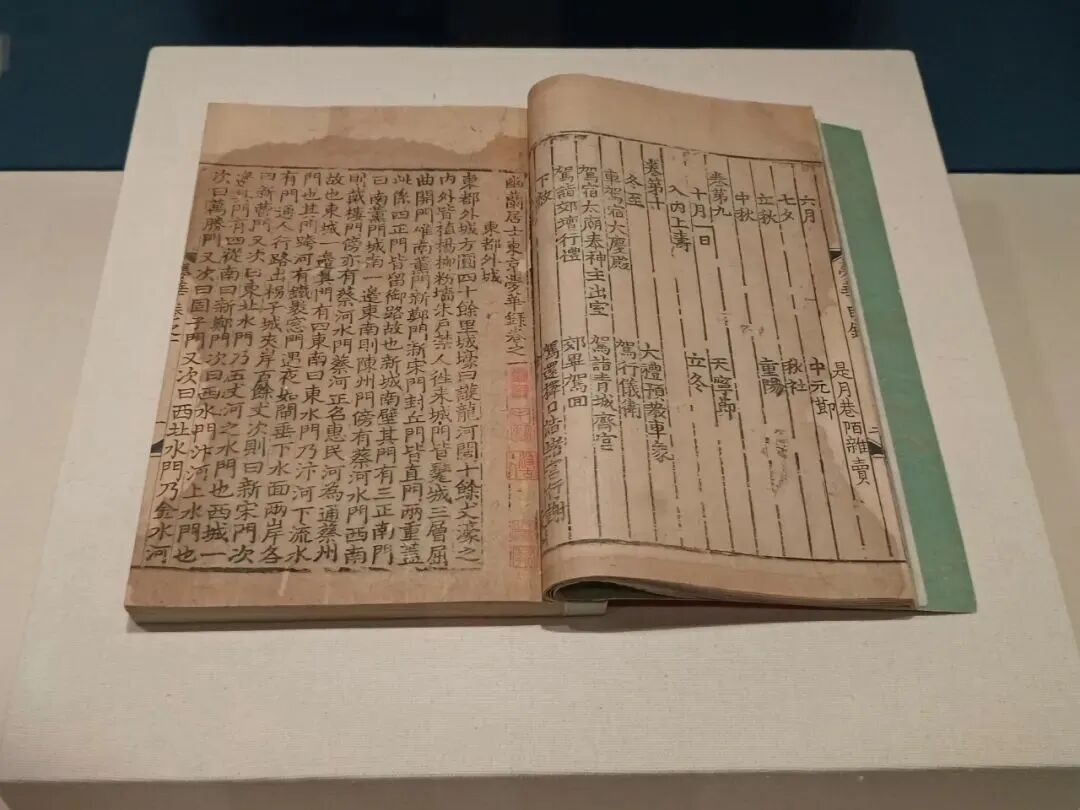 六月 是月巷陌雜賣
七夕 中元節
立秋 秋社
中秋 重陽
卷第九
十月一日 天寧節
入內上壽 立冬
卷第十
冬至 大禮預教車象
車駕宿大慶殿 駕行儀衛
駕宿太廟奉神主出室 駕詣青城齋宮
駕詣郊壇行禮 郊畢駕回
下赦 駕還擇日詣諸宮行謝
夢華目錄 二
幽蘭居士東京夢華錄卷之一
東都外城
東都外城方圓四十餘里城壕曰護龍河闊十餘丈濠之
內外皆植楊柳粉墻朱戶禁人往來城門皆甕城三層屈
曲開門唯南薰門新鄭門新宋門封丘門皆直門兩重蓋
此係四正門皆留御路故也新城南壁其門有三正南門
曰南薰門城南一邊東南則陳州門傍有蔡河水門西南
則戴樓門傍亦有蔡河水門蔡河正名惠民河為通蔡州
故也東城一邊其門有四東南曰東水門乃汴河下流水
門也其門跨河有鐵裹窓門遇夜如閘垂下水面兩岸各
有門通人行路出楊子城夾岸百餘丈次則曰新宋門次
曰新曹門又次曰東北水門乃五丈河之水門也西城一
邊其門有四從南曰新鄭門次曰西水門汴河上水門也
次曰萬勝門又次曰固子門又次曰西北水門乃金水河